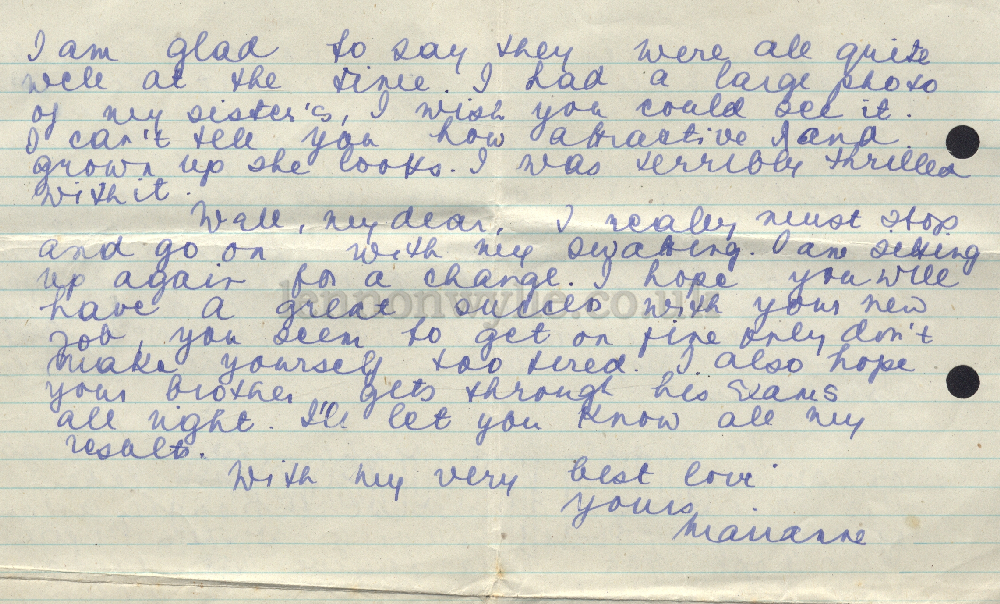 I am glad to say they were all quite
well at the time. I had a large photo
of my sister's, I wish you could see it.
I can't tell you how attractive and
grown up she looks. I was terribly thrilled
with it.
Well, my dear, I really must stop
and go on with my swatting. I am sitting
up again for a change. I hope you will
have a great success with your new
job, you seem to get on fine only don't
make yourself too tired. I also hope
your brother gets through his Exams
all right. I'll let you know all my
results.
With my very best love
yours
Marianne